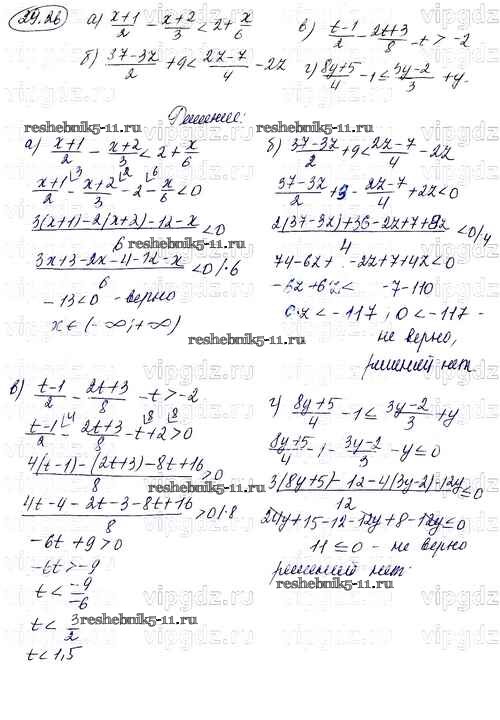 29.26
а) (x+1)/2 - (x+2)/3 < 2 + x/6
в) (t-1)/2 - (2t+3)/8 - t > -2
б) (37-3z)/2 + 9 < (2z-7)/4 - 2z
г) (8y+5)/4 - 1 ≤ (3y-2)/3 + y.
Решение:
reshebnik5-11.ru
а) (x+1)/2 - (x+2)/3 < 2 + x/6
(x+1)/2 - (x+2)/3 - 2 - x/6 < 0
(3(x+1)-2(x+2)-12-x)/6 < 0
(3x+3-2x-4-12-x)/6 < 0 /·6
-13 < 0 - верно
x ∈ (-∞; +∞)
reshebnik5-11.ru
б) (37-3z)/2 + 9 < (2z-7)/4 - 2z
(37-3z)/2 + 9 - (2z-7)/4 + 2z < 0
(2(37-3z)+36-2z+7+8z)/4 < 0 /·4
74-6z+ -2z+7+4z < 0
-6z+6z < -7-110
6z < -117; 0 < -117 -
не верно,
решений нет
в) (t-1)/2 - (2t+3)/8 - t > -2
(t-1)/2 - (2t+3)/8 - t + 2 > 0
(4(t-1)-(2t+3)-8t+16)/8 > 0
(4t-4-2t-3-8t+16)/8 > 0 /·8
-6t + 9 > 0
-6t > -9
t < -9/-6
t < 3/2
t < 1,5
reshebnik5-11.ru
г) (8y+5)/4 - 1 ≤ (3y-2)/3 + y
(8y+5)/4 - (3y-2)/3 - y ≤ 0
(3(8y+5)-12-4(3y-2)-12y)/12 ≤ 0
24y+15-12-12y+8-12y ≤ 0
11 ≤ 0 - не верно
решений нет.
reshebnik5-11.ru
vipgdz.ru